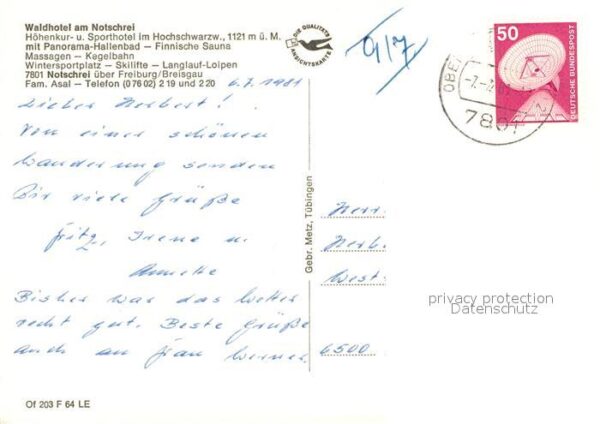 Waldhotel am Notschrei
Höhenkur- u. Sporthotel im Hochschwarzw., 1121 m ü. M.
mit Panorama-Hallenbad — Finnische Sauna
Massagen — Kegelbahn
Wintersportplatz — Skilifte — Langlauf-Loipen
7801 Notschrei über Freiburg/Breisgau
Fam. Asal — Telefon (0 76 02) 2 19 und 2 20
DIE QUALITÄTS
ANSICHTSKARTE
9/7
50
DEUTSCHE BUNDESPOST
OBE
7801
6.7.1981
Lieber Herbert!
Von einer schönen
Wanderung senden
Dir viele Grüße
Fritz, Irene u.
Annette
Bisher war das Wetter
recht gut. Beste Grüße
auch an Frau Werner
Gebr. Metz, Tübingen
Herr
Herb
West
6500
privacy protection
Datenschutz
Of 203 F 64 LE